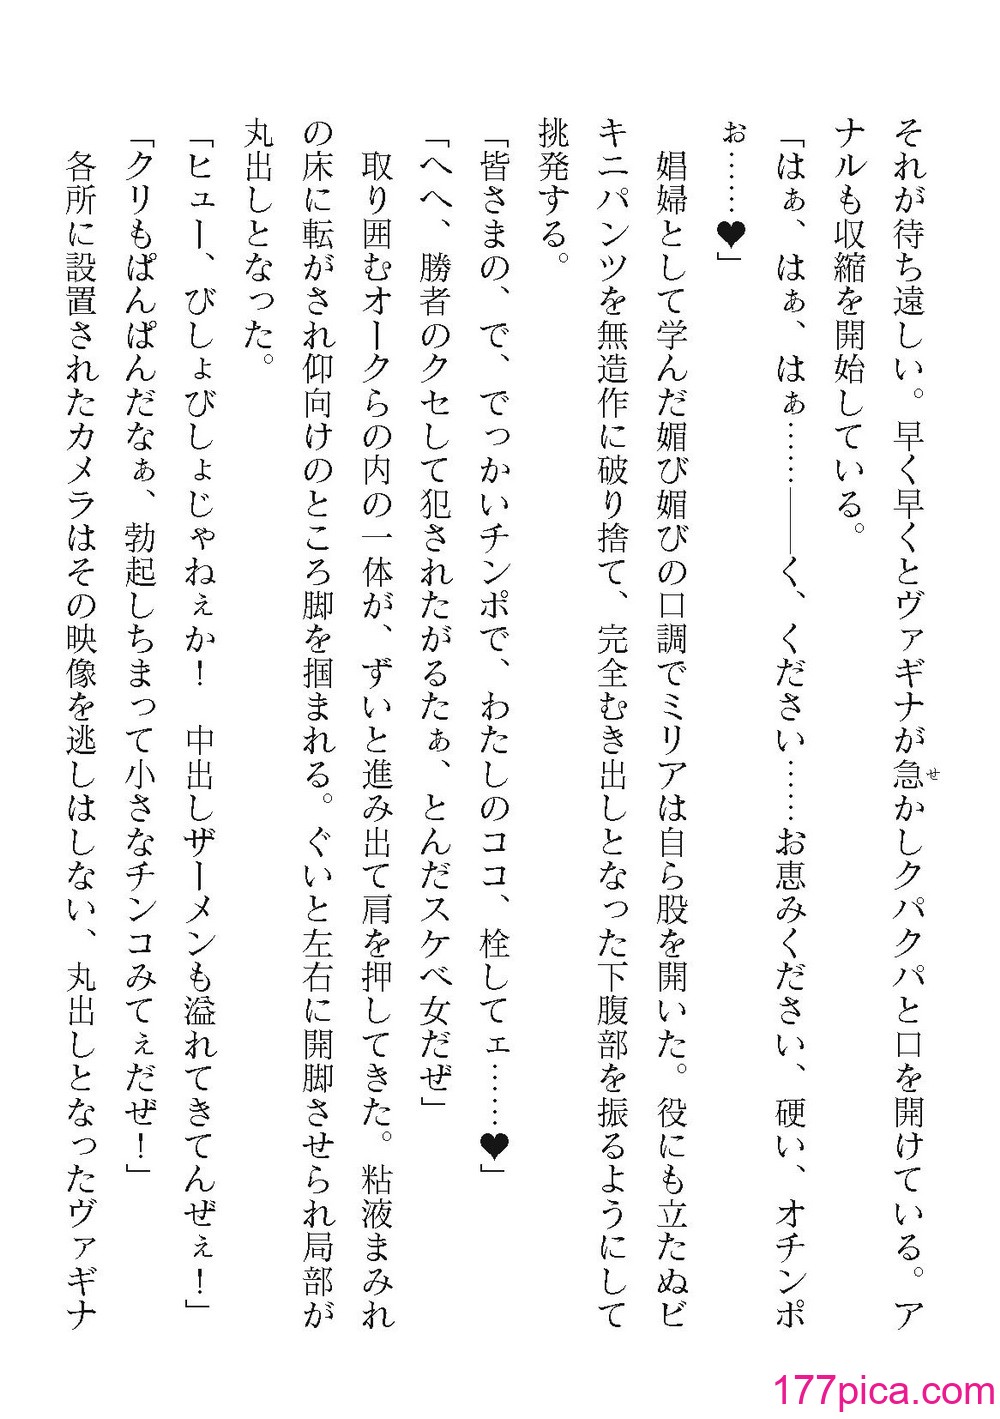 それが待ち遠しい。早く早くとヴァギナが急かしクパクパと口を開けている。ア
ナルも収縮を開始している。
「はぁ、はぁ、はぁ……――く、ください……お恵みください、硬い、オチンポ
ぉ……♥」
娼婦として学んだ媚び媚びの口調でミリアは自ら股を開いた。役にも立たぬビ
キニパンツを無造作に破り捨て、完全むき出しとなった下腹部を振るようにして
挑発する。
「皆さまの、で、でっかいチンポで、わたしのココ、栓してェ……♥」
「へへ、勝者のクセして犯されたがるたぁ、とんだスケベ女だぜ」
取り囲むオークらの内の一体が、ずいと進み出て肩を押してきた。粘液まみれ
の床に転がされ仰向けのところ脚を掴まれる。ぐいと左右に開脚させられ局部が
丸出しとなった。
「ヒュー、びしょびしょじゃねぇか！　中出しザーメンも溢れてきてんぜぇ！」
「クリもぱんぱんだなぁ、勃起しちまって小さなチンコみてぇだぜ！」
各所に設置されたカメラはその映像を逃しはしない、丸出しとなったヴァギナ
せ
177pica.com